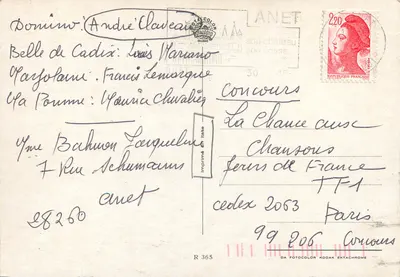 Domino: André Claveau
Belle de Cadix: Luis Mariano
Marjolaine. Francis Lemarque
Ma Pomme: Maurice Chevalier
Mme Bahuon Jacqueline
7 Rue Schumann
anet
28260
ANET
2,20
Concours
La Chance aux
Chansons
Jeux de France
TF1
cedex 2063
Paris
99 206 Concours
R 365
OA FOTOCOLOR KODAK EKTACHROME